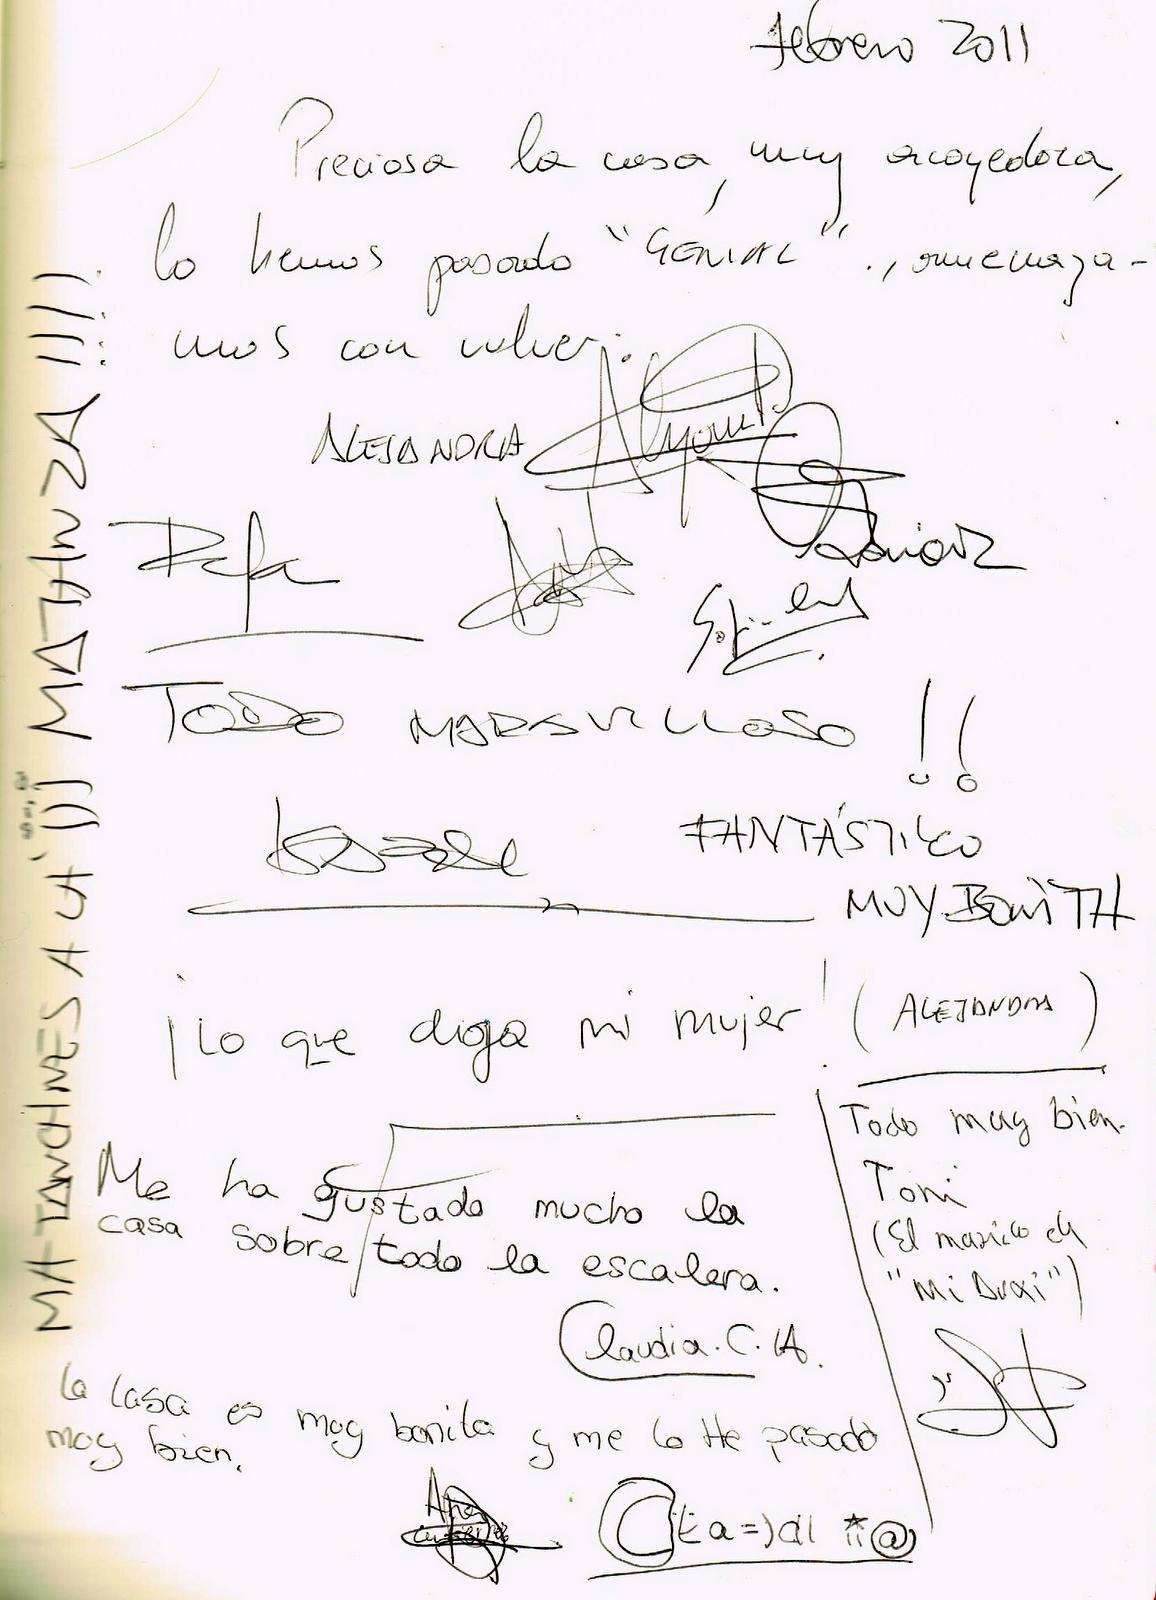 Febrero 2011
Preciosa la casa, muy acogedora,
lo hemos pasado "GENIAL"., amenaza-
mos con volver.
ALEJANDRA
Rafa
TODO MARAVILLOSO !!
FANTÁSTICO
MUY BONITA
¡Lo que diga mi mujer! (ALEJANDRA)
Me ha gustado mucho la
casa sobre todo la escalera.
Claudia. C. A.
La casa es muy bonita y me lo He pasado
muy bien.
Todo muy bien.
Toni
(El marido de
"Mi Duxi")
MATANCHINES A LA ¡¡¡ MATANZA!!!!